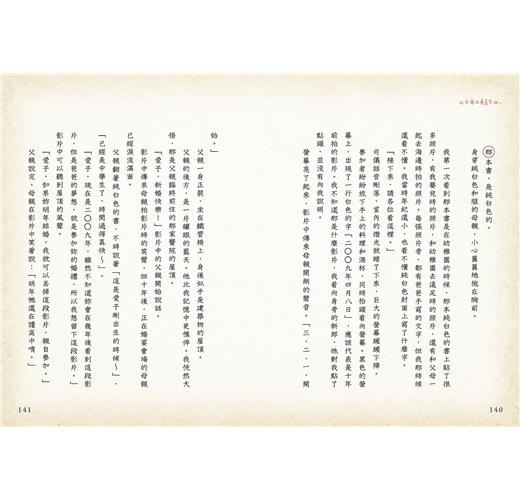 那本書，是純白色的。
身穿純白色和服的母親，小心翼翼地抱在胸前。
我第一次看到那本書是在幼稚園的時候，那本純白色的書上貼了很
多照片，有我嬰兒時的照片，和幼稚園去遠足時的照片，還有和父母一
起去海邊時拍的照片。每張照片旁，都有爸爸手寫的文字，但我那時候
還看不懂。我當時年紀還小，也看不懂純白色封面上寫了什麼字。
「接下來，請各位看這裡。」
司儀話音剛落，室內的燈光就暗了下來，巨大的螢幕緩緩下降。
參加者紛紛放下手上的料理和酒杯，同時抬頭看向螢幕。黑色的螢
幕上，出現了一行白色的字「二〇〇九年四月八日」，應該代表是十年
前拍的影片。我不知道那是什麼影片，我看向身旁的新郎，他對我點了
點頭，並沒有向我說明。
螢幕亮了起來，影片中傳來母親開朗的聲音。「三、二、一，開
始。」
父親一身正裝，坐在鐵管椅上，身後似乎是建築物的屋頂。
父親的後方，是一片耀眼的藍天。他比我記憶中更憔悴。我恍然大
悟，那是父親臨終前住的那家醫院的屋頂。
「愛子，新婚快樂！」影片中的父親開始說話。
影片中傳來母親拍影片時的笑聲，但十年後，正在婚宴會場的母親
已經淚流滿面。
父親翻著純白色的書，不時說著「這是愛子剛出生的時候～」、
「已經是中學生了，時間過得真快～」。
「愛子，現在是二〇〇九年。雖然不知道妳會在幾年後看到這段影
片，但是爸爸的夢想，就是參加妳的婚禮，所以我想留下這段影片。」
影片中可以聽到屋頂的風聲。
「愛子，如果妳明年結婚，我就可以丟掉這段影片，親自參加。」
父親說完，母親在影片中笑著說：「明年她還在讀高中唷。」
140
141